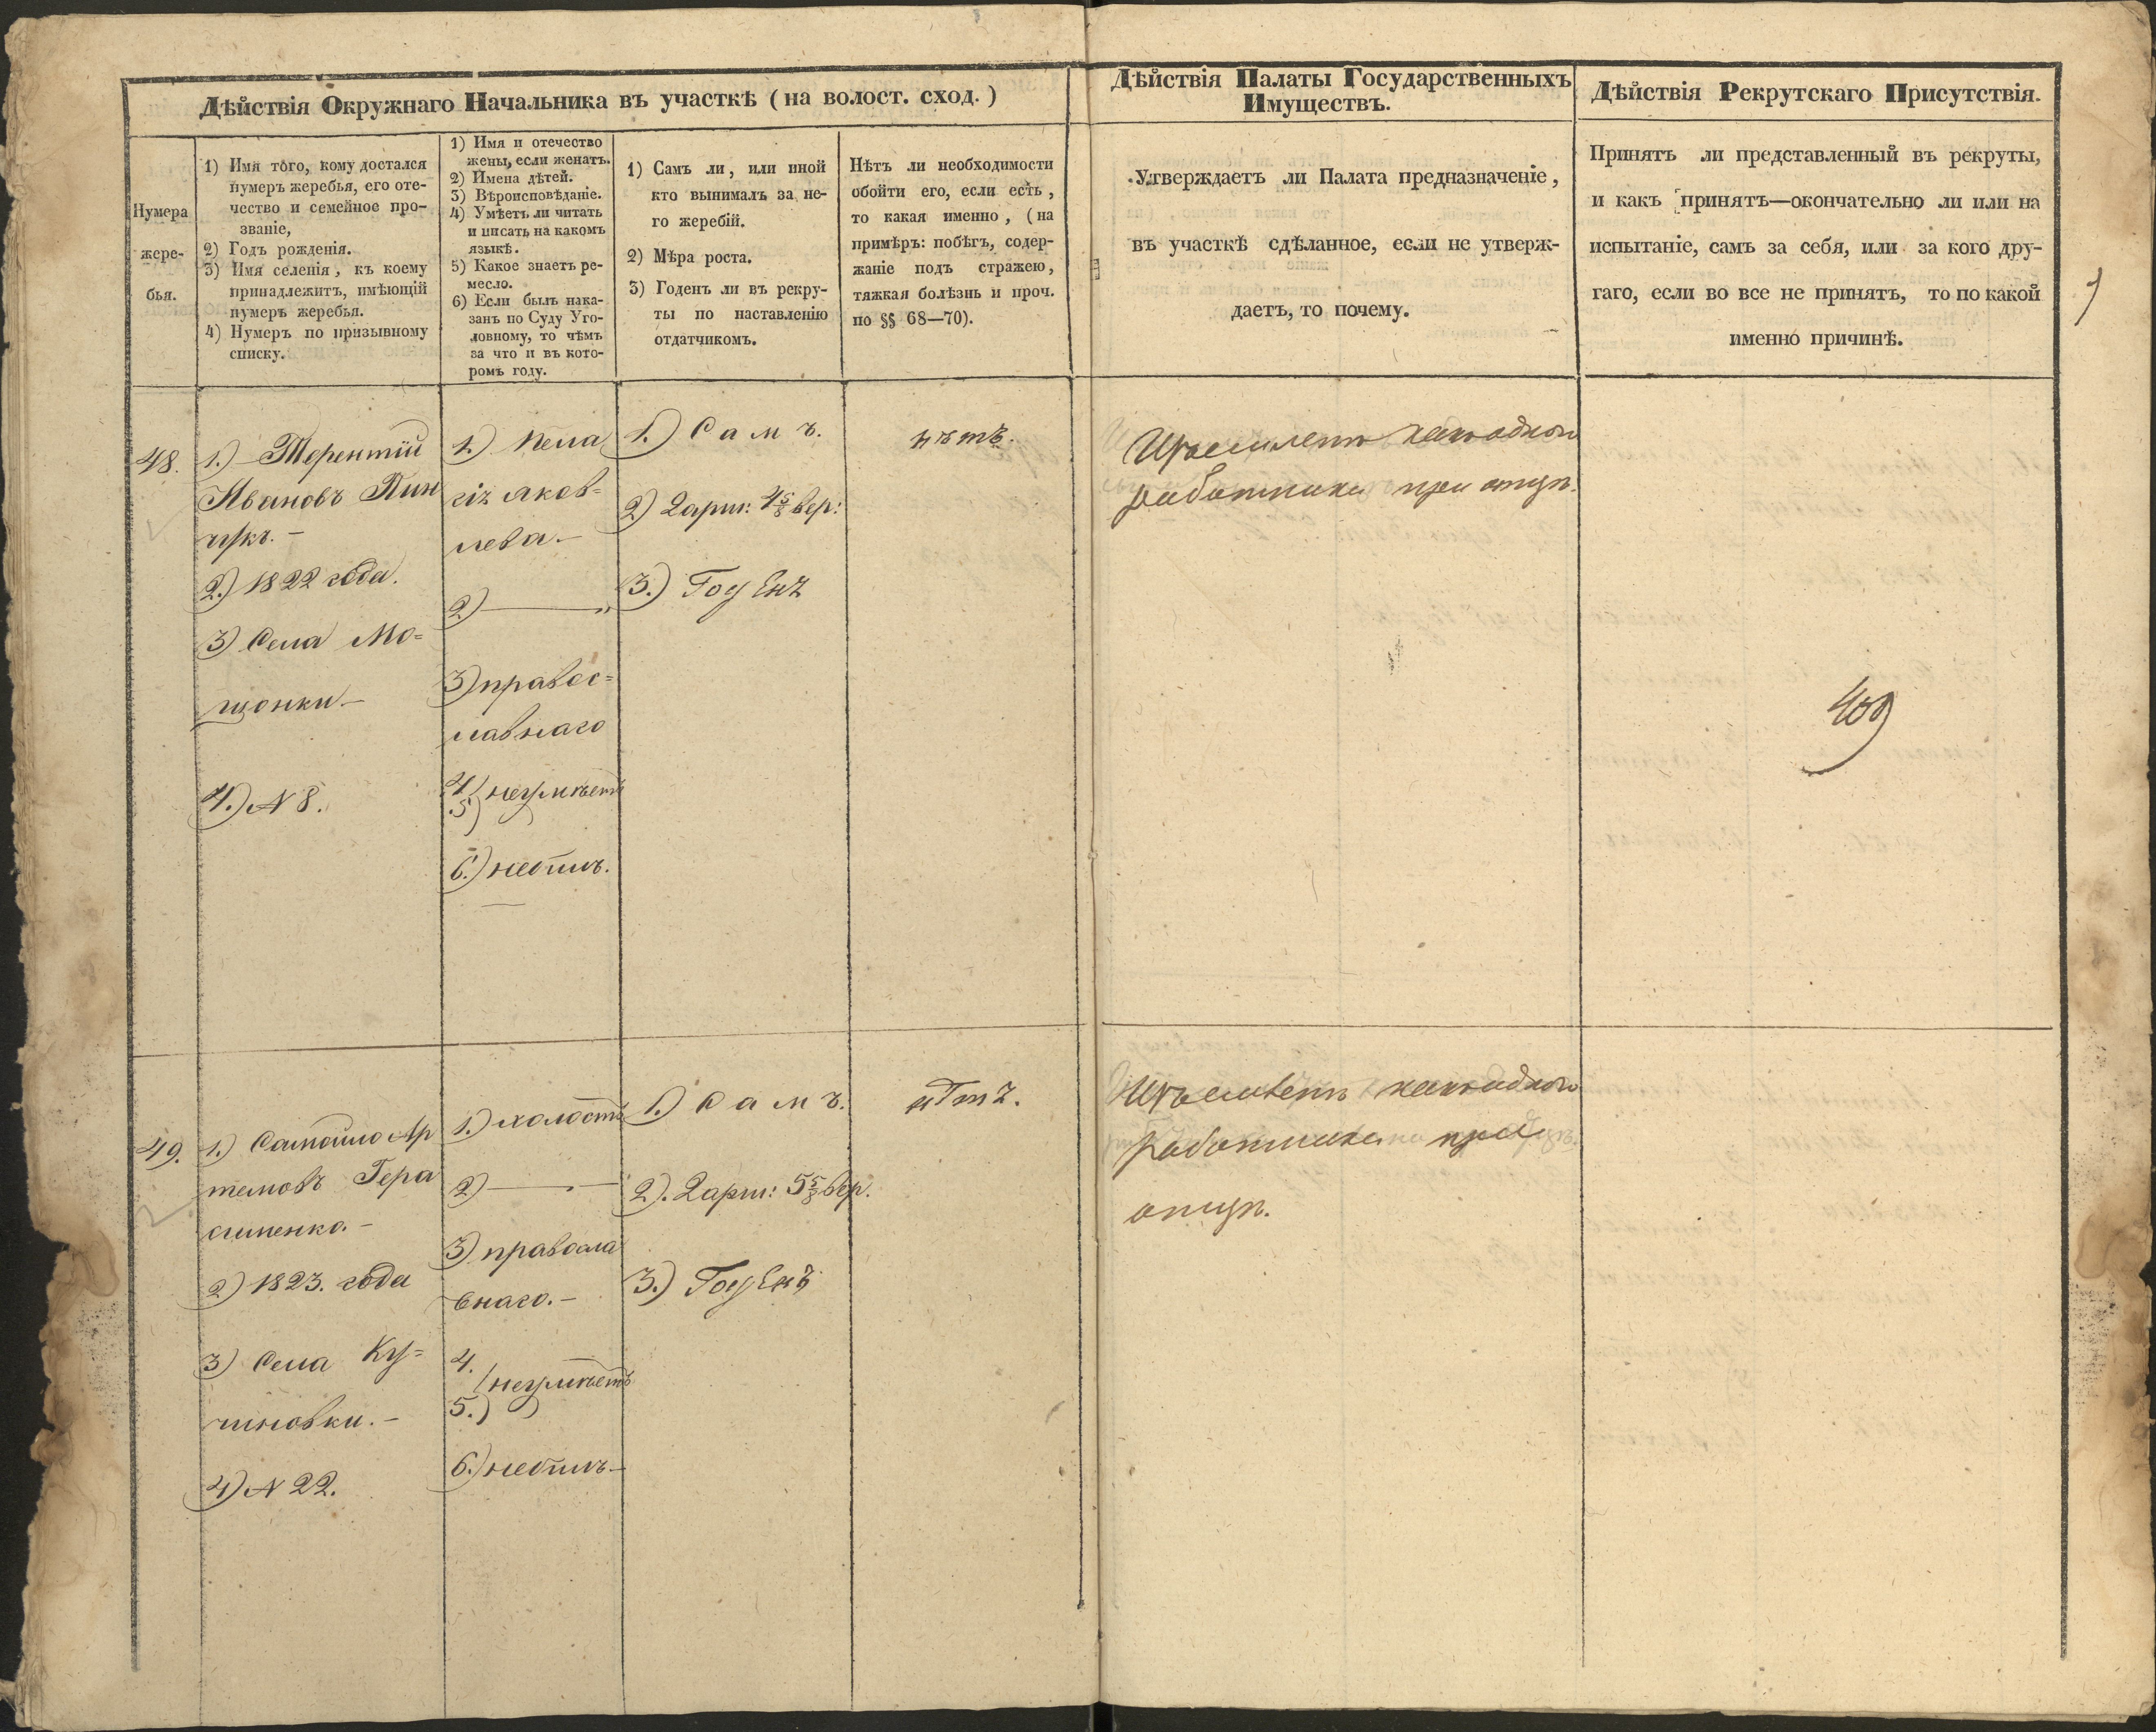 Дѣйствія Окружнаго Начальника въ участкѣ (на волост. сход.)
Нумера
жере-
бья.
1) Имя того, кому достался
нумеръ жеребья, его оте-
чество и семейное про-
званіе,
2) Годъ рожденія.
3) Имя селенія, къ коему
принадлежитъ, имѣющій
нумеръ жеребья.
4) Нумеръ по призывному
списку.
1) Имя и отечество
жены, если женатъ.
2) Имена дѣтей.
3) Вѣроисповѣданіе.
4) Умѣетъ ли читать
и писать на какомъ
языкѣ.
5) Какое знаетъ ре-
месло.
6) Если былъ нака-
занъ по Суду Уго-
ловному, то чѣмъ
за что и въ кото-
ромъ году.
1) Самъ ли, или иной
кто вынималъ за не-
го жеребій.
2) Мѣра роста.
3) Годенъ ли въ рекру-
ты по наставленію
отдатчикомъ.
Нѣтъ ли необходимости
обойти его, если есть,
то какая именно, (на
примѣръ: побѣгъ, содер-
жаніе подъ стражею,
тяжкая болѣзнь и проч.
по §§ 68—70).
Дѣйствія Палаты Государственныхъ
Имуществъ.
Утверждаетъ ли Палата предназначеніе,
въ участкѣ сдѣланное, если не утверж-
даетъ, то почему.
Дѣйствія Рекрутскаго Присутствія.
Принятъ ли представленный въ рекруты,
и какъ принятъ—окончательно ли или на
испытаніе, самъ за себя, или за кого дру-
гаго, если во все не принятъ, то по какой
именно причинѣ.
48.
1.) Терентій
Ивановъ Пин
чукъ.—
2.) 1822 года.
3) Села Мо=
щонки.—
4.) № 8.
1.) Пела
гіѧ Яков=
лева.—
2) — „
3) правос=
лавнаго
4)
5) неумѣетъ
6.) небылъ.
1.) Самъ.
2) 2 арш: 4 5/8 вер:
3.) Годенъ
нѣтъ.
работника при отцѣ.
409
49.
1.) Самойло Ар
темовъ Гера
сименко.—
2) 1823. года
3) Села Ку=
чиновки.—
4) № 22.
1.) холостъ
2) —
3) правосла
внаго.—
4.
5.) неумѣетъ
6.) небылъ—
1.) Самъ.
2). 2 арш: 5 5/8 вер.
3.) Годенъ
нѣтъ.
работника при
отцѣ.